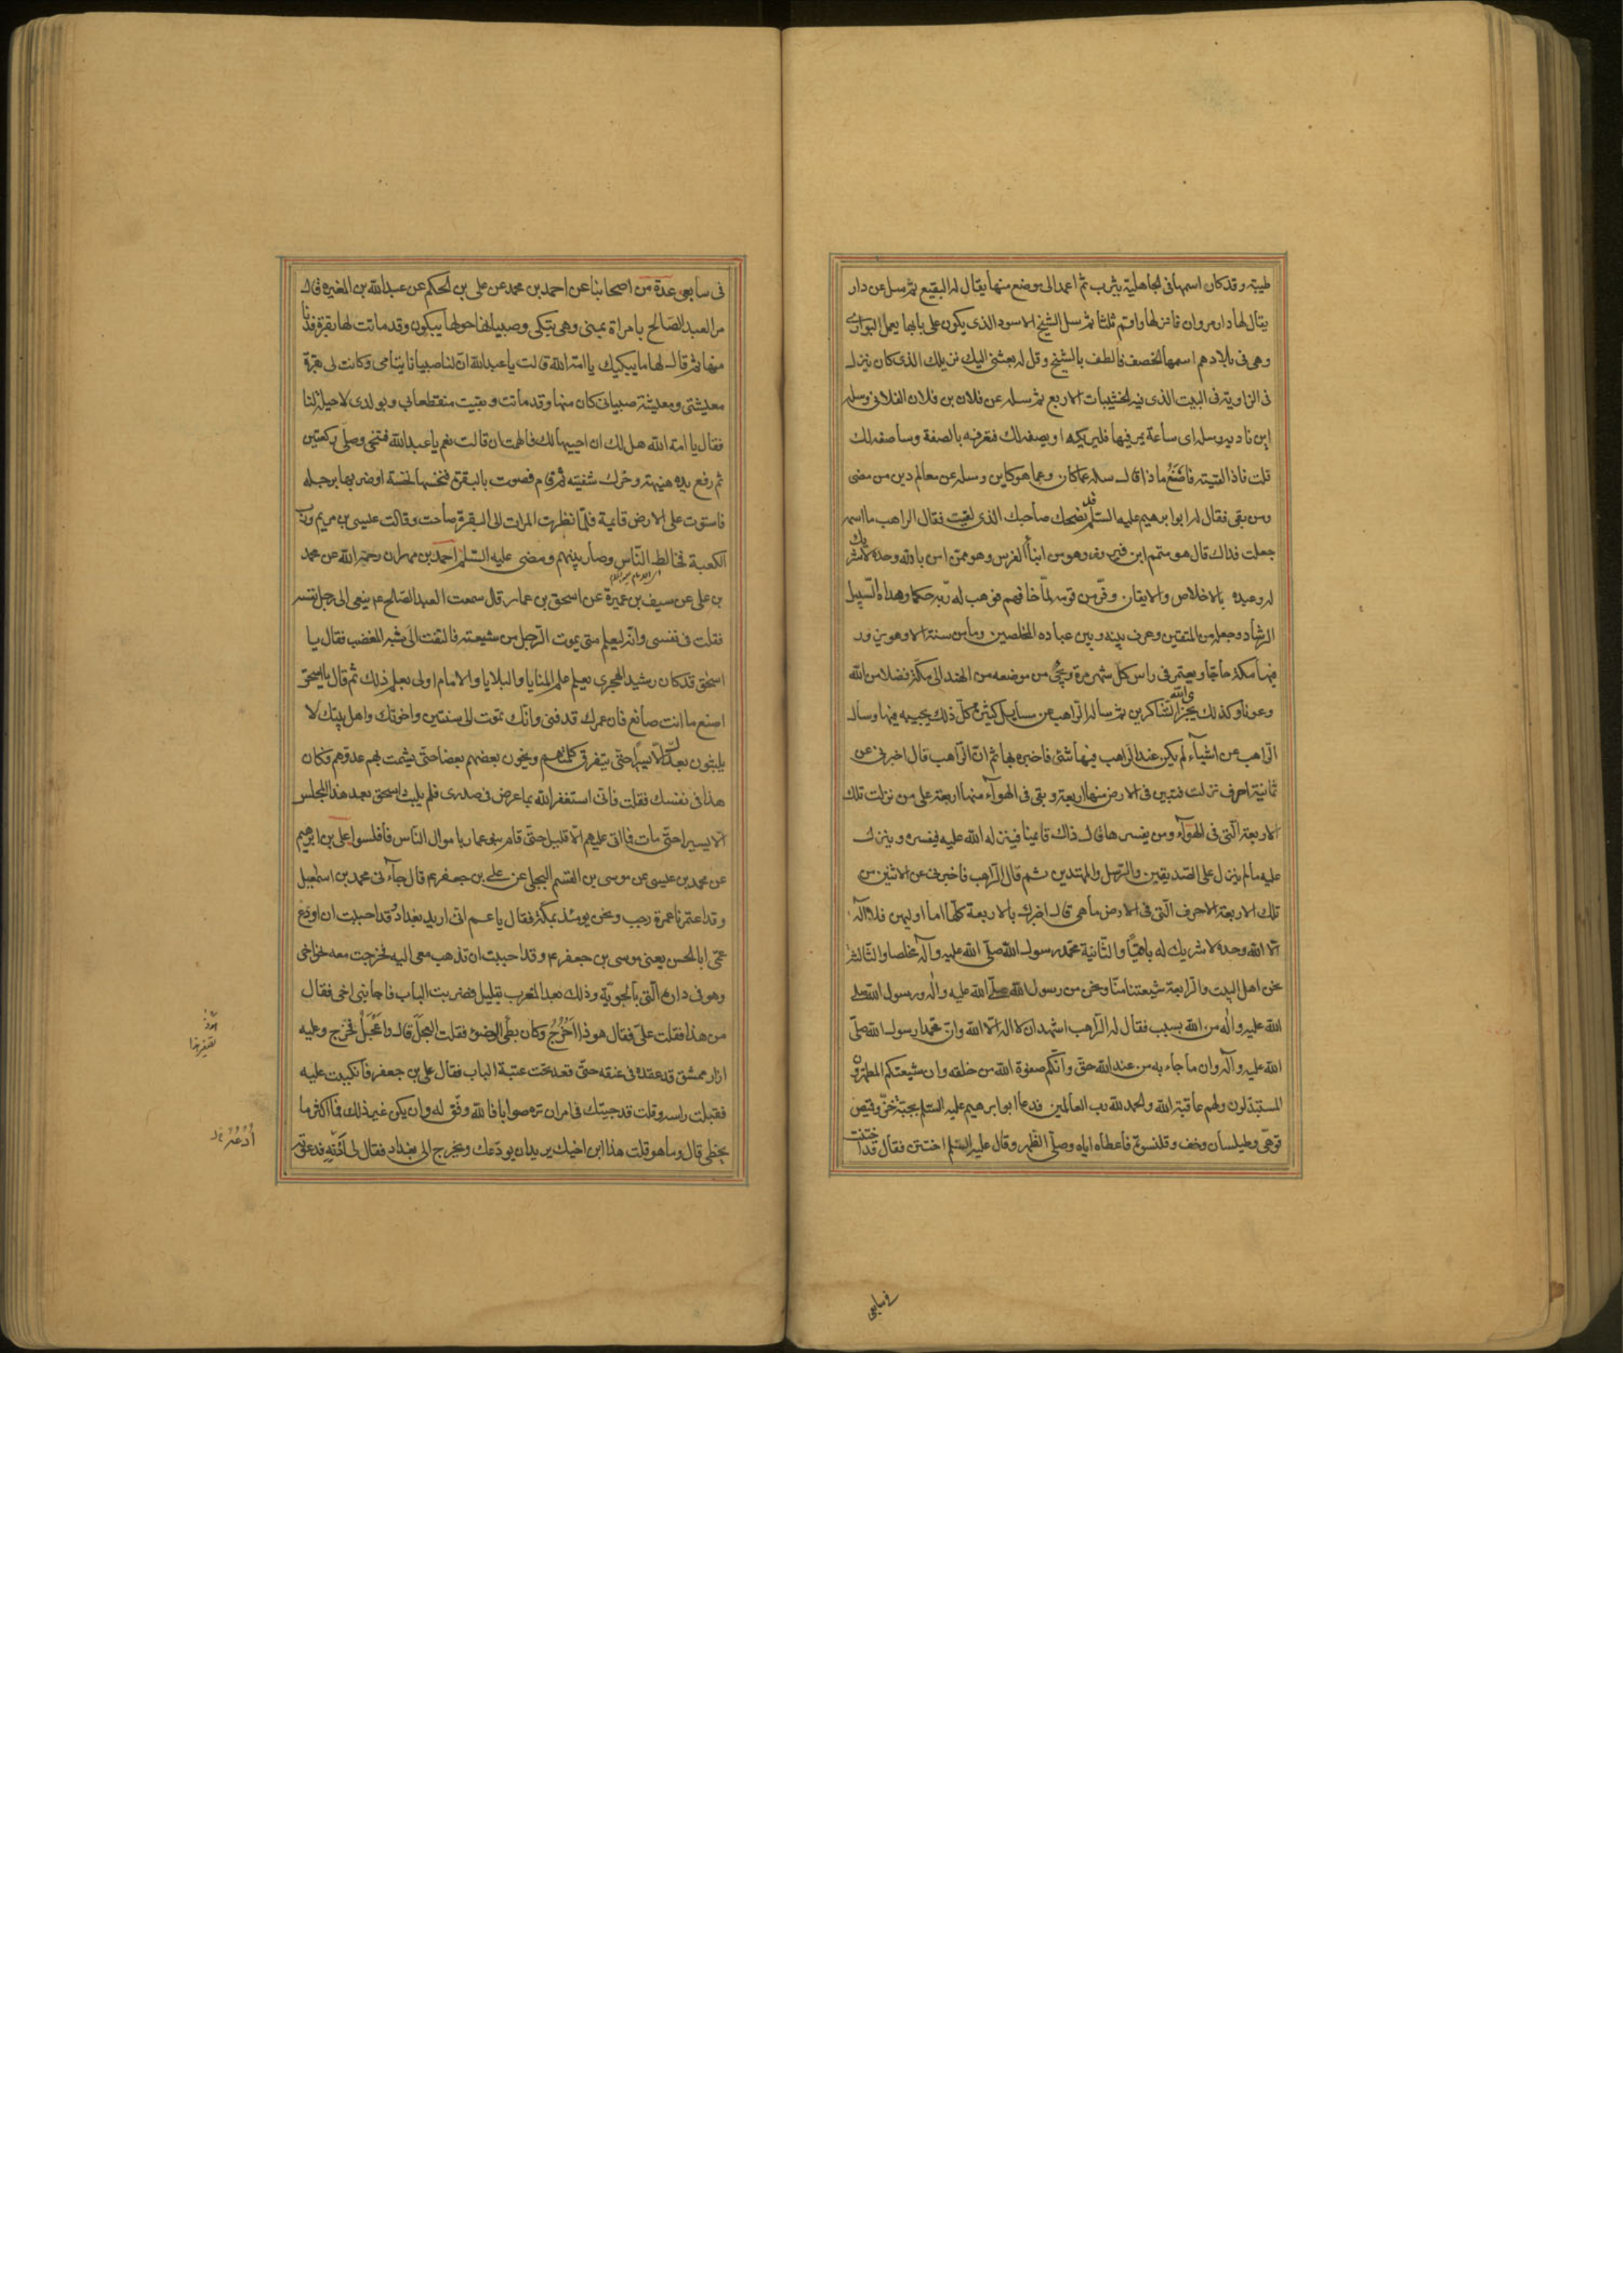 طيبة وقد كان اسمها فى الجاهلية يثرب ثم اعمد الى موضع منها يقال له البقيع ثم سل عن دار
يقال لها دار مروان فانزلها واقم ثلثا ثم سل الشيخ الاسود الذى يكون على بابها يعمل البوارى
وهى فى بلادهم اسمها الخصف فالطف بالشيخ وقل له بعثنى اليك نزيلك الذى كان ينزل
فى الزاوية فى البيت الذى فيه الخشيبات الاربع ثم سله عن فلان بن فلان الفلانى وسله
اين ناديه وسله اى ساعة يمر فيها فليريكه او يصفه لك فتعرفه بالصفة وساصفه لك
قلت فاذا لقيته فاصنع ماذا قال سله عما كان وعما هو كاين وسله عن معالم دين من مضى
ومن بقى فقال له ابو ابرهيم عليه السلم قد نصحك صاحبك الذى لقيت فقال الراهب ما اسمه
جعلت فداك قال هو متمم ابن فيروز وهو من ابنآ الفرس وهو ممن امن بالله وحده لا شريك
له وعبده بالاخلاص والايقان وفر من قومه لما خافهم فوهب له ربه حكما وهداه لسبيل
الرشاد وجعله من المتقين وعرف بينه وبين عباده المخلصين وما من سنة الا وهو يزور
فيها مكة حاجا ويعتمر فى راس كل شهر مرة ويجئ من موضعه من الهند الى مكة فضلا من الله
وعونا وكذلك يجزى الله الشاكرين ثم ساله الراهب عن مسايل كثيرة كل ذلك يجيبه فيها وسال
الراهب عن اشيآء لم يكن عند الراهب فيها شئ فاخبره بها ثم ان الراهب قال اخبرنى عن
ثمانية احرف نزلت فتبين فى الارض منها اربعة وبقى فى الهوآء منها اربعة على من نزلت تلك
الاربعة التى فى الهوآء ومن يفسرها قال ذاك قائمنا فينزله الله عليه فيفسره وينزل
عليه ما لم ينزل على الصديقين والرسل والمهتدين ثم قال الراهب فاخبرنى عن الاثنين من
تلك الاربعة الاحرف التى فى الارض ما هى قال اخبرك بالاربعة كلها اما اوليهن فلا اله
الا الله وحده لا شريك له باقيا والثانية محمد رسول الله صلى الله عليه وآله مخلصا والثالثة
نحن اهل البيت والرابعة شيعتنا منا ونحن من رسول الله صلى الله عليه واله ورسول الله صلى
الله عليه واله من الله بسبب فقال له الراهب اشهد ان لا اله الا الله وان محمدا رسول الله صلى
الله عليه وآله وان ما جاء به من عند الله حق وانكم صفوة الله من خلقه وان شيعتكم المطهرون
المستبذلون ولهم عاقبة الله والحمد لله رب العالمين فدعا ابو ابرهيم عليه السلم بجبة خز وقميص
قوهى وطيلسان وخف وقلنسوة فاعطاه اياه وصلى الظهر وقال عليه السلم اختتن فقال قد اختتنت
فى سابعى
فى سابعى عدة من اصحابنا عن احمد بن محمد عن على بن الحكم عن عبدالله بن المغيره قال
مر العبد الصالح بامراة بمنى وهى تبكى وصبيانها حولها يبكون وقد ماتت لها بقرة فدنا
منها ثم قال لها ما يبكيك يا امة الله قالت يا عبدالله ان لنا صبيانا يتامى وكانت لى بقرة
معيشتى ومعيشة صبيانى كان منها وقد ماتت وبقيت منقطعا بى وبولدى لا حيلة لنا
فقال يا امة الله هل لك ان احييها لك فالهمت ان قالت نعم يا عبدالله فتنحى وصلى ركعتين
ثم رفع يده هنيهة وحرك شفتيه ثم قام فصوت بالبقرة فنخسها نخسة او ضربها برجله
فاستوت على الارض قايمة فلما نظرت المراة الى البقرة صاحت وقالت عيسى بن مريم ورب
الكعبة فخالط الناس وصار بينهم ومضى عليه السلم احمد بن مهران رحمه الله عن محمد
بن على عن سيف بن عميرة عن اسحق بن عمار قال سمعت العبد الصالح ع ينعى الى رجل نفسه
فقلت فى نفسى وانه ليعلم متى يموت الرجل من شيعته فالتفت الى شبه المغضب فقال يا
اسحق قد كان رشيد الهجرى يعلم علم المنايا والبلايا والامام اولى بعلم ذلك ثم قال يا اسحق
اصنع ما انت صانع فان عمرك قد فنى وانك تموت الى سنتين واخوتك واهل بيتك لا
يلبثون بعدك الا يسيرا حتى يتفرق كلمتهم ويخون بعضهم بعضا حتى يشمت بهم عدوهم فكان
هذا فى نفسك فقلت فانى استغفر الله بما عرض فى صدرى فلم يلبث اسحق بعد هذا المجلس
الا يسيرا حتى مات فما اتى عليهم الا قليل حتى قام بنو عمار باموال الناس فافلسوا على بن ابرهيم
عن محمد بن عيسى عن موسى بن القسم البجلى عن على بن جعفر ع قال جآءنى محمد بن اسمعيل
وقد اعتمرنا عمرة رجب ونحن يومئذ بمكة فقال يا عم انى اريد بغداد وقد احببت ان اودع
عمى ابا الحسن يعنى موسى بن جعفر ع وقد احببت ان تذهب معى اليه فخرجت معه نحو اخى
وهو فى داره التى بالحوبة وذلك بعد المغرب بقليل فضربت الباب فاجابنى اخى فقال
من هذا فقلت على فقال هو ذا اخرج وكان بطئ الوضوء فقلت العجل قال واعجل فخرج وعليه
ازار ممشق قد عقده فى عنقه حتى قعد تحت عتبة الباب فقال على بن جعفر فانكببت عليه
فقبلت راسه وقلت قد جيتك فى امر ان تره صوابا فالله وفق له وان يكن غير ذلك فما اكثر ما
نخطى قال وما هو قلت هذا ابن اخيك يريد ان يودعك ويخرج الى بغداد فقال لى ادعه فدعوته